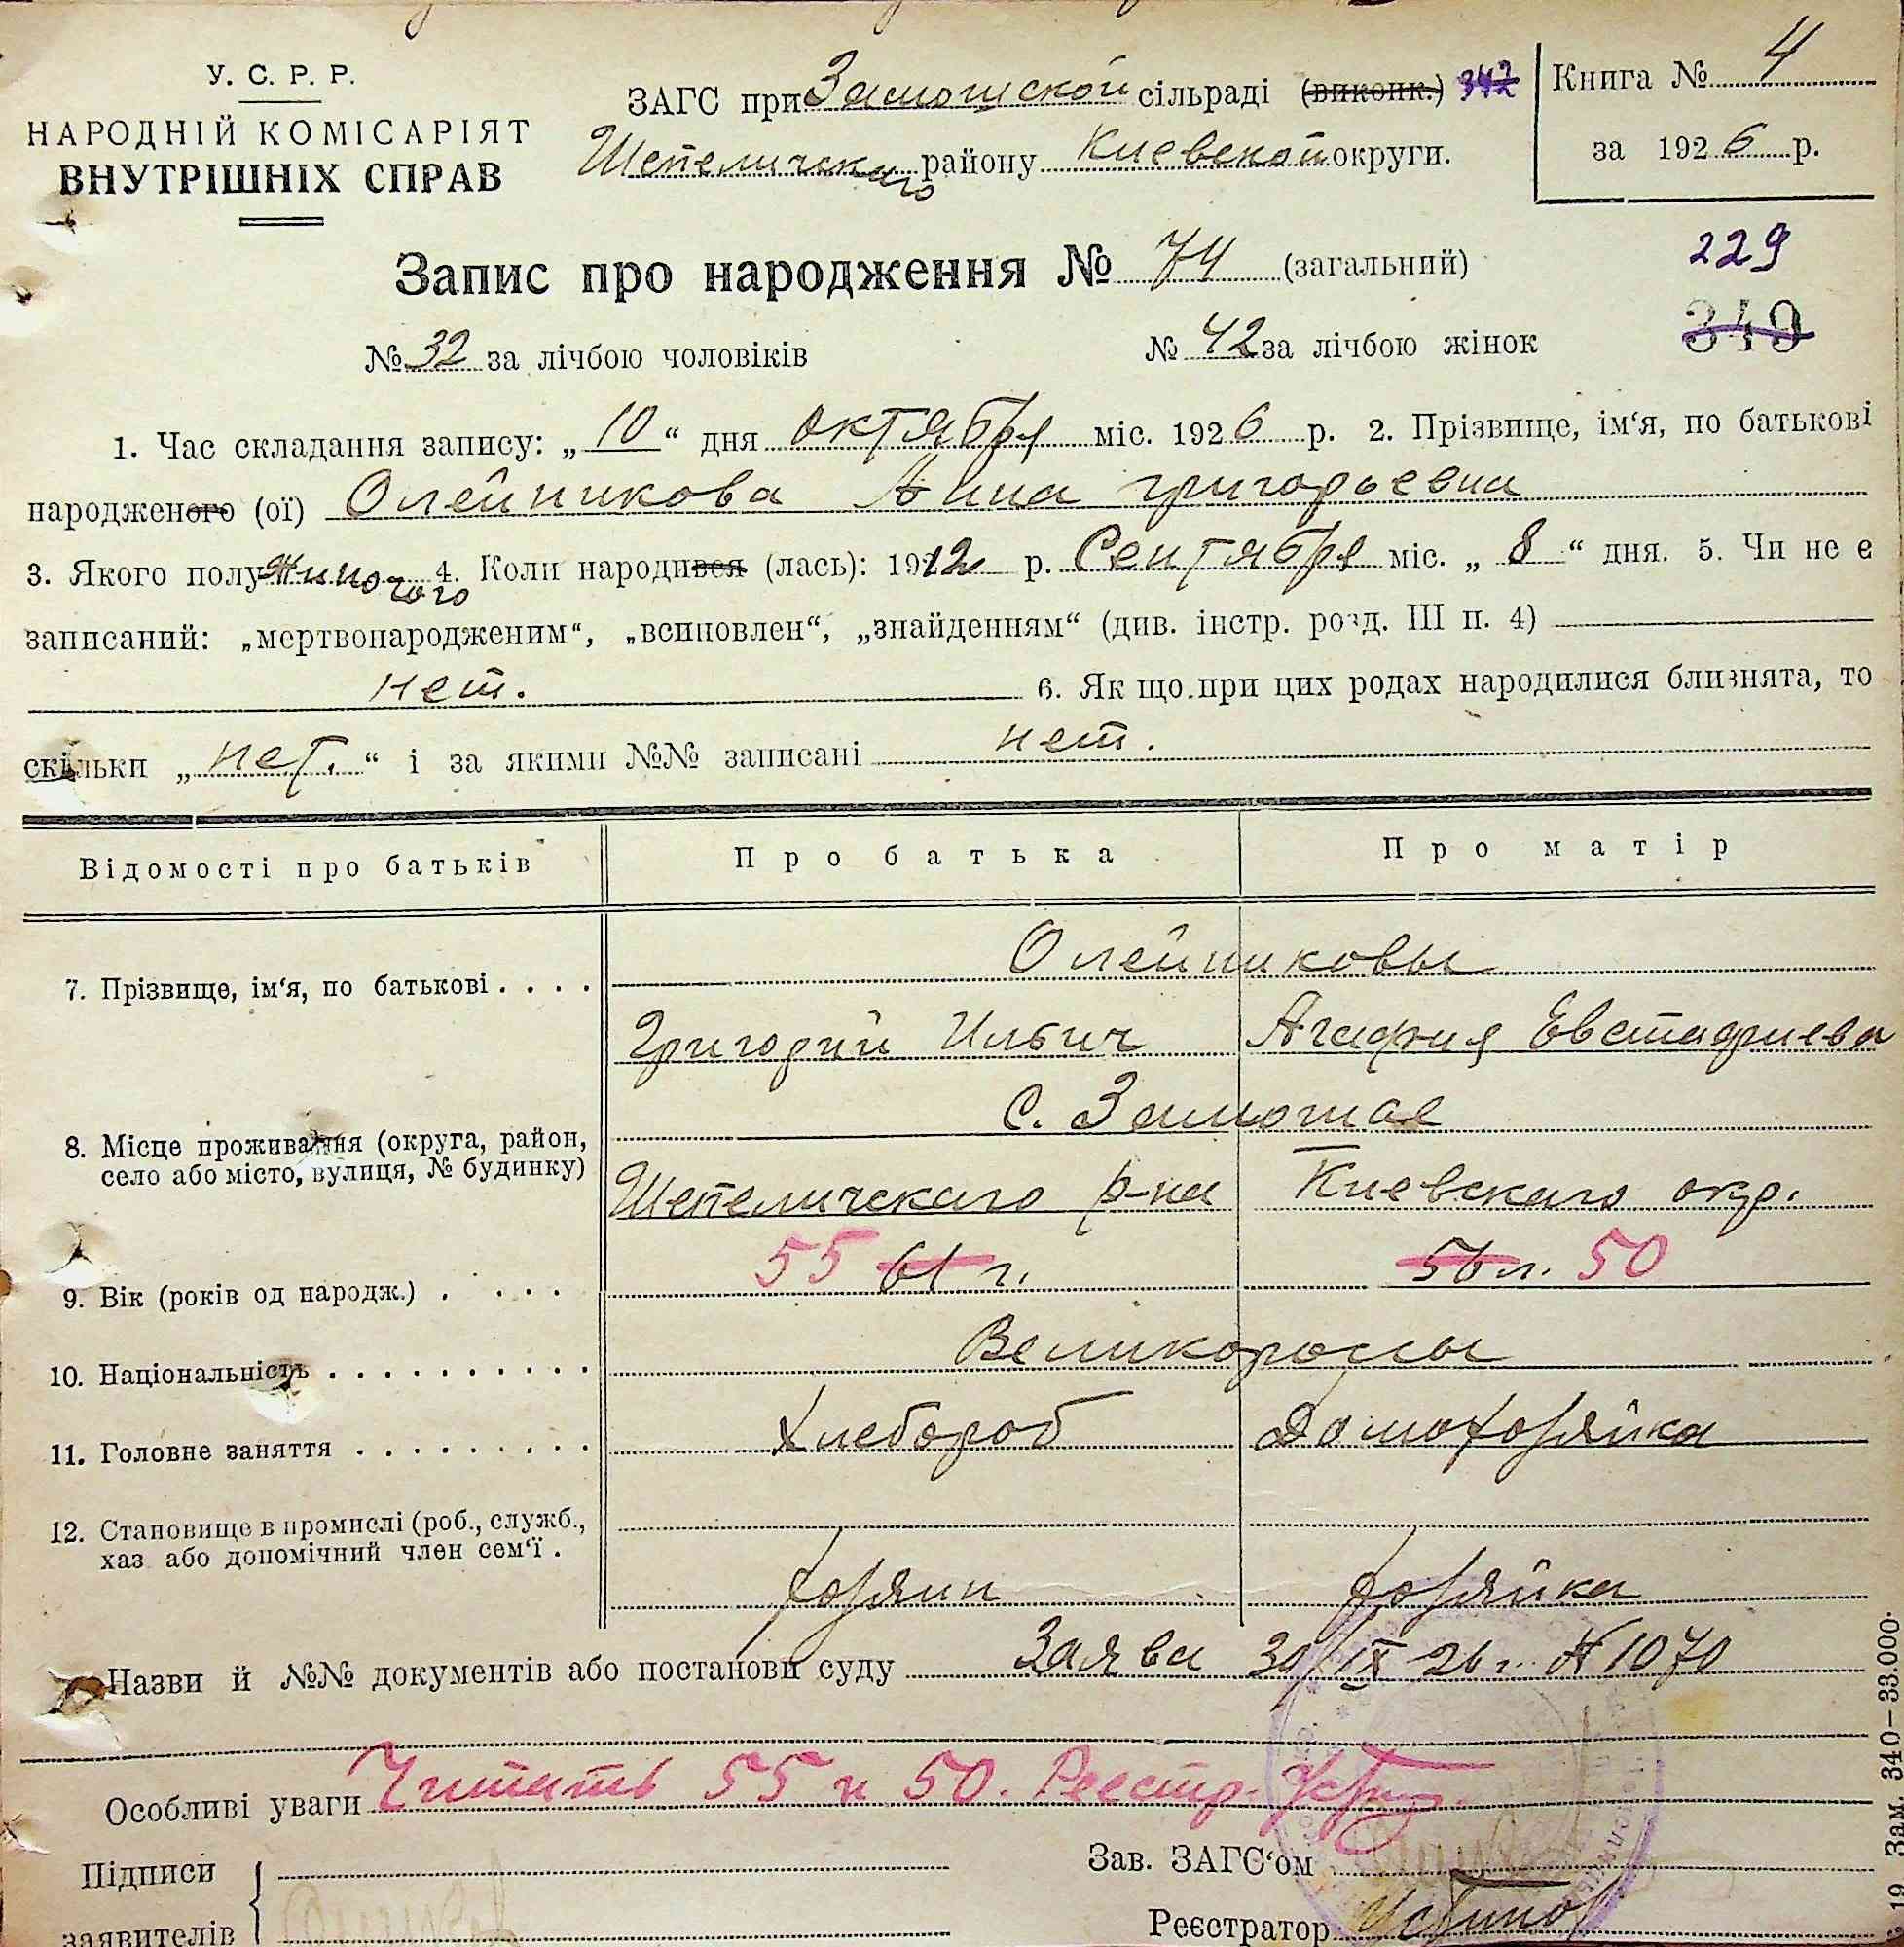 У. С. Р. Р.
НАРОДНІЙ КОМІСАРІЯТ
ВНУТРІШНІХ СПРАВ
ЗАГС при Замошской сільраді (виконк.) 347
Шепеличскаго району Киевской округи.
Книга № 4
за 1926 р.
Запис про народження № 74 (загальний)
229
№ 32 за лічбою чоловіків № 42 за лічбою жінок
349
1. Час складання запису: „ 10 “ дня октября міс. 1926 р. 2. Прізвище, ім‘я, по батькові
народженого (ої) Олейникова Анна григорьевна
3. Якого полу жиночого 4. Коли народився (лась): 1912 р. Сентября міс. „ 8 “ дня. 5. Чи не є
записаний: „мертвонародженим“, „всиновлен“, „знайденням“ (див. інстр. розд. III п. 4)
нет. 6. Як що при цих родах народилися близнята, то
скільки „ нет. “ і за якими №№ записані нет.
Відомості про батьків Про батька Про матір
Олейниковы
7. Прізвище, ім‘я, по батькові . . . .
Григорий Ильич Агафия Евстафиева
С. Замошае
8. Місце проживання (округа, район,
село або місто, вулиця, № будинку)
Шепеличскаго р-на Киевскаго окр.
9. Вік (років од народж.) . . . . 55 61 г. 56 л. 50
10. Національність . . . . . . . . . . Великороссы
11. Головне заняття . . . . . . . . . Хлебороб Домохозяйка
12. Становище в промислі (роб., служб.,
хаз або допомічний член сем‘ї .
хозяин хозяйка
Назви й №№ документів або постанови суду Заява 30/IX 26 г. № 1070
Особливі уваги Читать 55 и 50. Реестр. Устин.
Підписи
заявителів
Зав. ЗАГС‘ом
Реєстратор Устинов
19 Зам. 340–33.000.